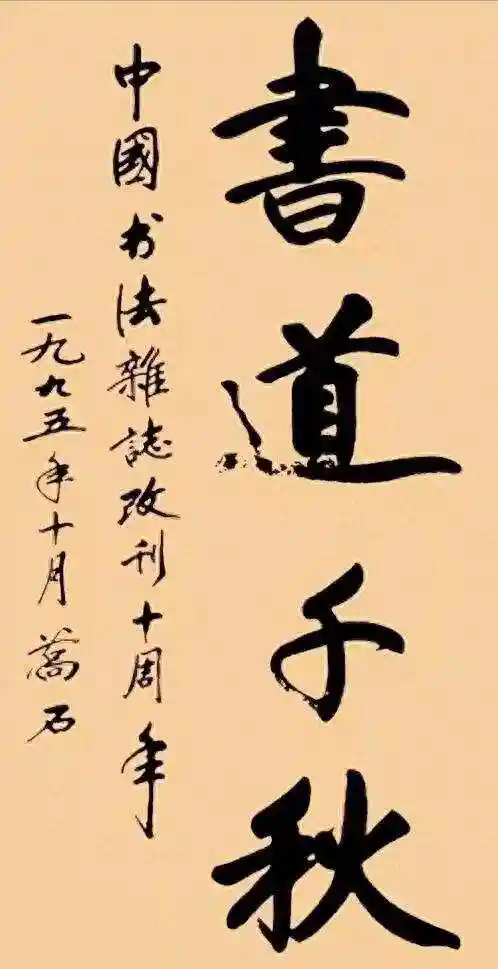 書道千秋
中國书法雜誌改刊十周年
一九九五年十月萬石